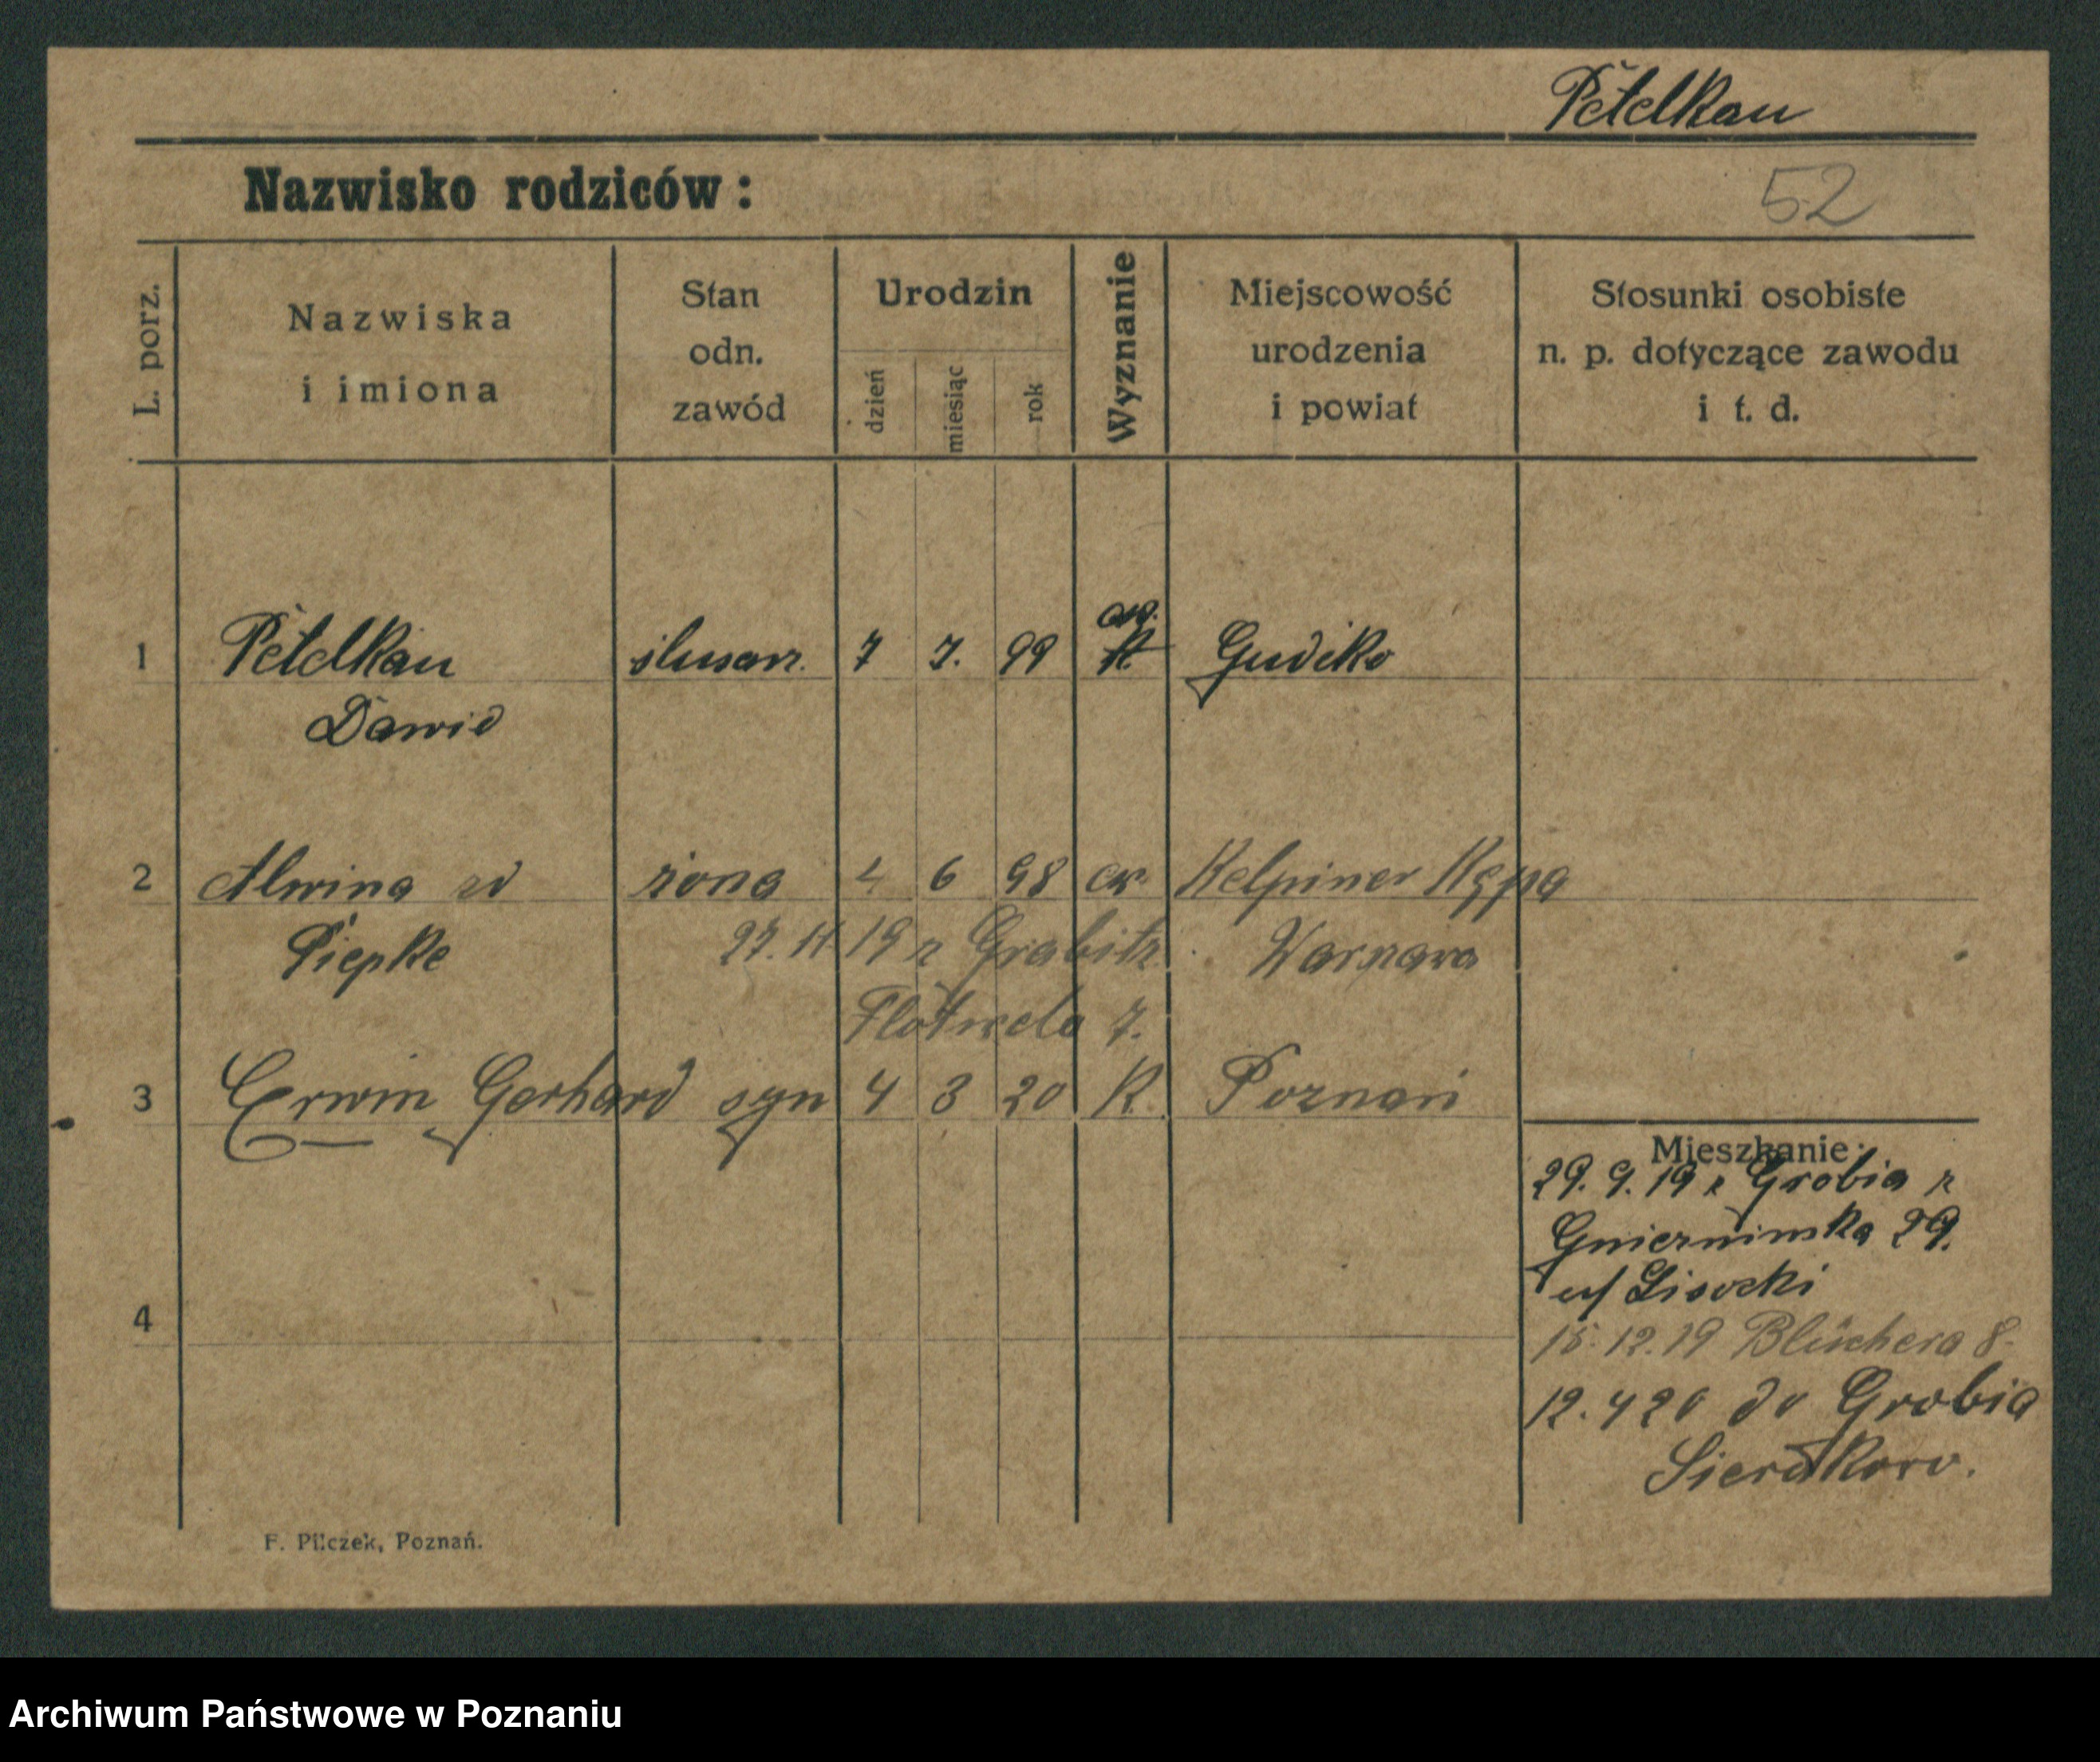 Petelkau
Nazwisko rodziców:
52
L. porz.
Nazwiska
i imiona
Stan
odn.
zawód
Urodzin
dzień
miesiąc
rok
Wyznanie
Miejscowość
urodzenia
i powiat
Stosunki osobiste
n. p. dotyczące zawodu
i t. d.
ew.
1 Petelkau ślusarz. 7 7. 99 K Gudiko
Dawid
2 Alwina zd żona 4 6 98 ew. Kelpiner Kępa
Piepke 27. 11 19 z Grabitz Warszawa
Flotwela 7.
3 Erwin Gerhard syn 4 3 20 K. Poznań
Mieszkanie:
29. 9. 19 z Grobia z
Gniezninska 29.
Lisocki
15. 12. 19 Blüchera 8.
4
12. 4 20 do Grobia
Sierakow.
F. Pilczek, Poznań.
Archiwum Państwowe w Poznaniu